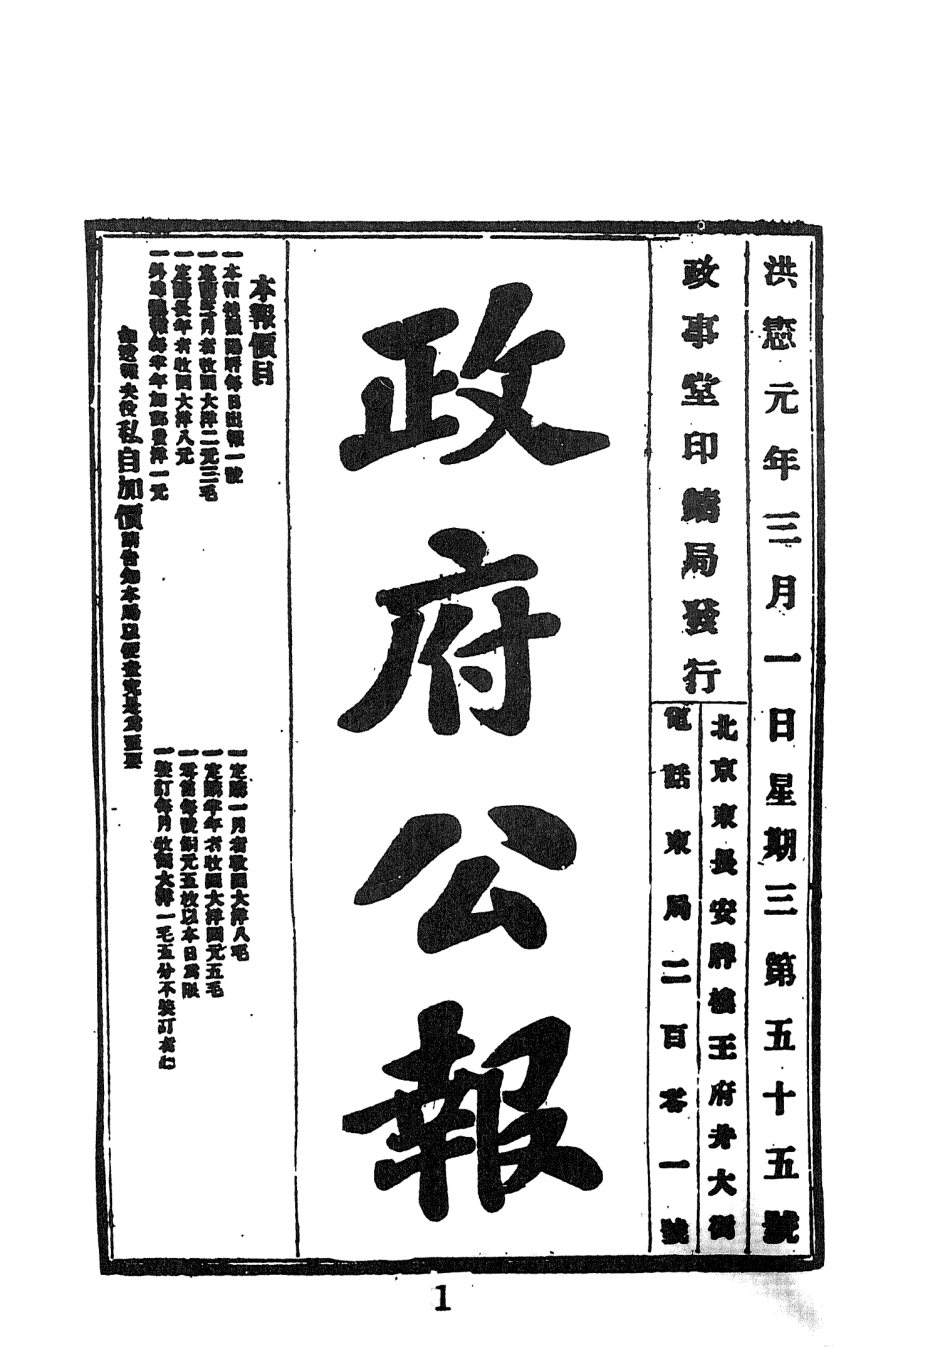 洪憲元年三月一日星期三第五十五號
政事堂印鑄局發行
北京東長安牌樓王府井大街
電話東局二百零一號
政府公報
本報價目
一本報按照陽曆每日出報一號
一定購三月者收國大洋二元三毛
一定購長年者收國大洋八元
一外埠購報每半年加郵費洋一元
如遇報夫役私自加價請告知本局以便查究是爲至要
一定購一月者收國大洋八毛
一定購半年者收國大洋四元五毛
一零售每號銅元五枚以本日爲限
一裝訂每月收國大洋一毛五分不裝訂者
1